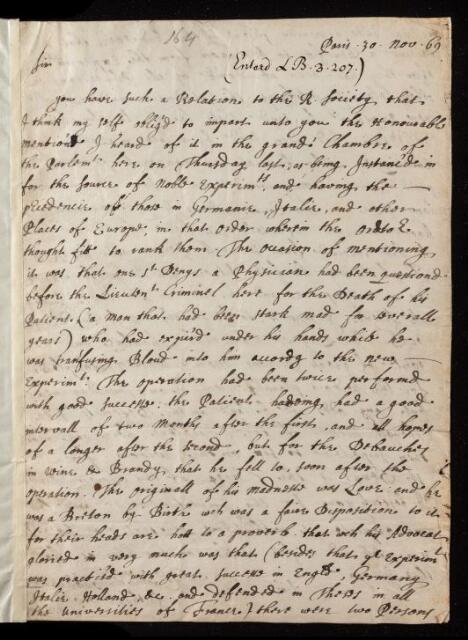 164
Paris 30 Nov. 69
Sir
(Enterd L B. 3. 207.)
you have such a Relation to the R. Society, that
I think my self oblig'd to impart unto you the Honourable
mention I heard of it in the grand Chambre of
the Parlemt here on Thursday last, as being Instanced in
for the source of Noble Experimts, and having the
precedencie of those in Germanie, Italie, and other
Places of Europe, in that order wherein the Orator
thought fitt to rank them. The occasion of mentioning
it was that one St Denys a Physician had been question'd
before the Lieutent Criminel here for the Death of his
Patient, (a man that had been stark mad for severall
years) who had expir'd under his hands while he
was transfusing Bloud into him accordg to the new
Experimt. The operation had been twice perform'd
with good successe, the Patient having had a good
intervall of two Months after the first, and all hopes
of a longer after the second, but for the Debauches
in wine & Brandy, that he fell to, soon after the
operation. The originall of his madnesse was Love and he
was a Breton by Birth wch was a faire Disposition to it
for their heads are hott to a proverb. that wch his Advocat
gloried in very much was that (besides that ye Experimt
was practic'd with great successe in Engld, Germany
Italie, Holland, &c. and defended in Theses in all
the Universities of France) there were two Persons